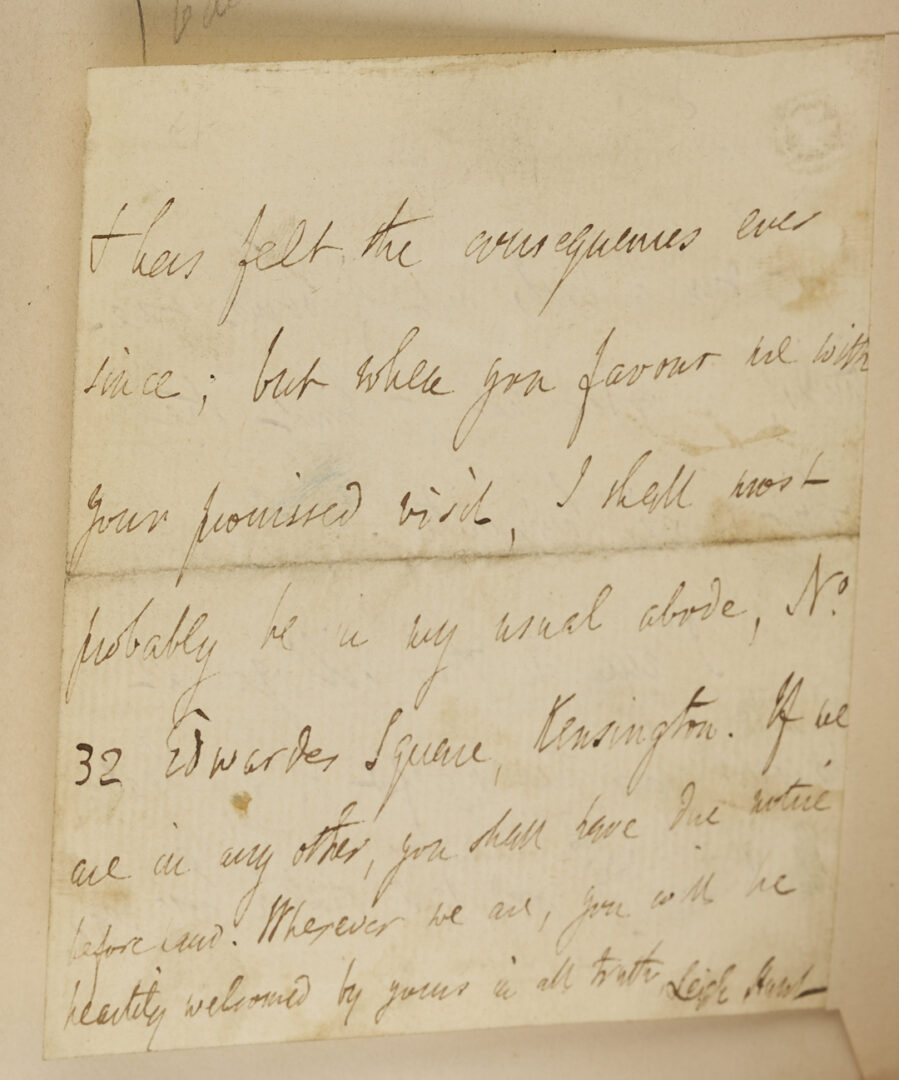 & has felt the consequences ever
since; but when you favour me with
your promised visit, I shall most
probably be in my usual abode, No.
32 Edwardes Square, Kensington. If we
are in any other, you shall have due notice
beforehand. Wherever we are, you will be
heartily welcomed by yours in all truth, Leigh Hunt